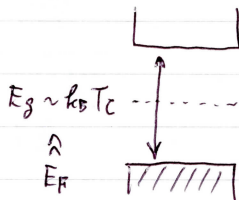 Eg ~ kB Tc
≪
EF